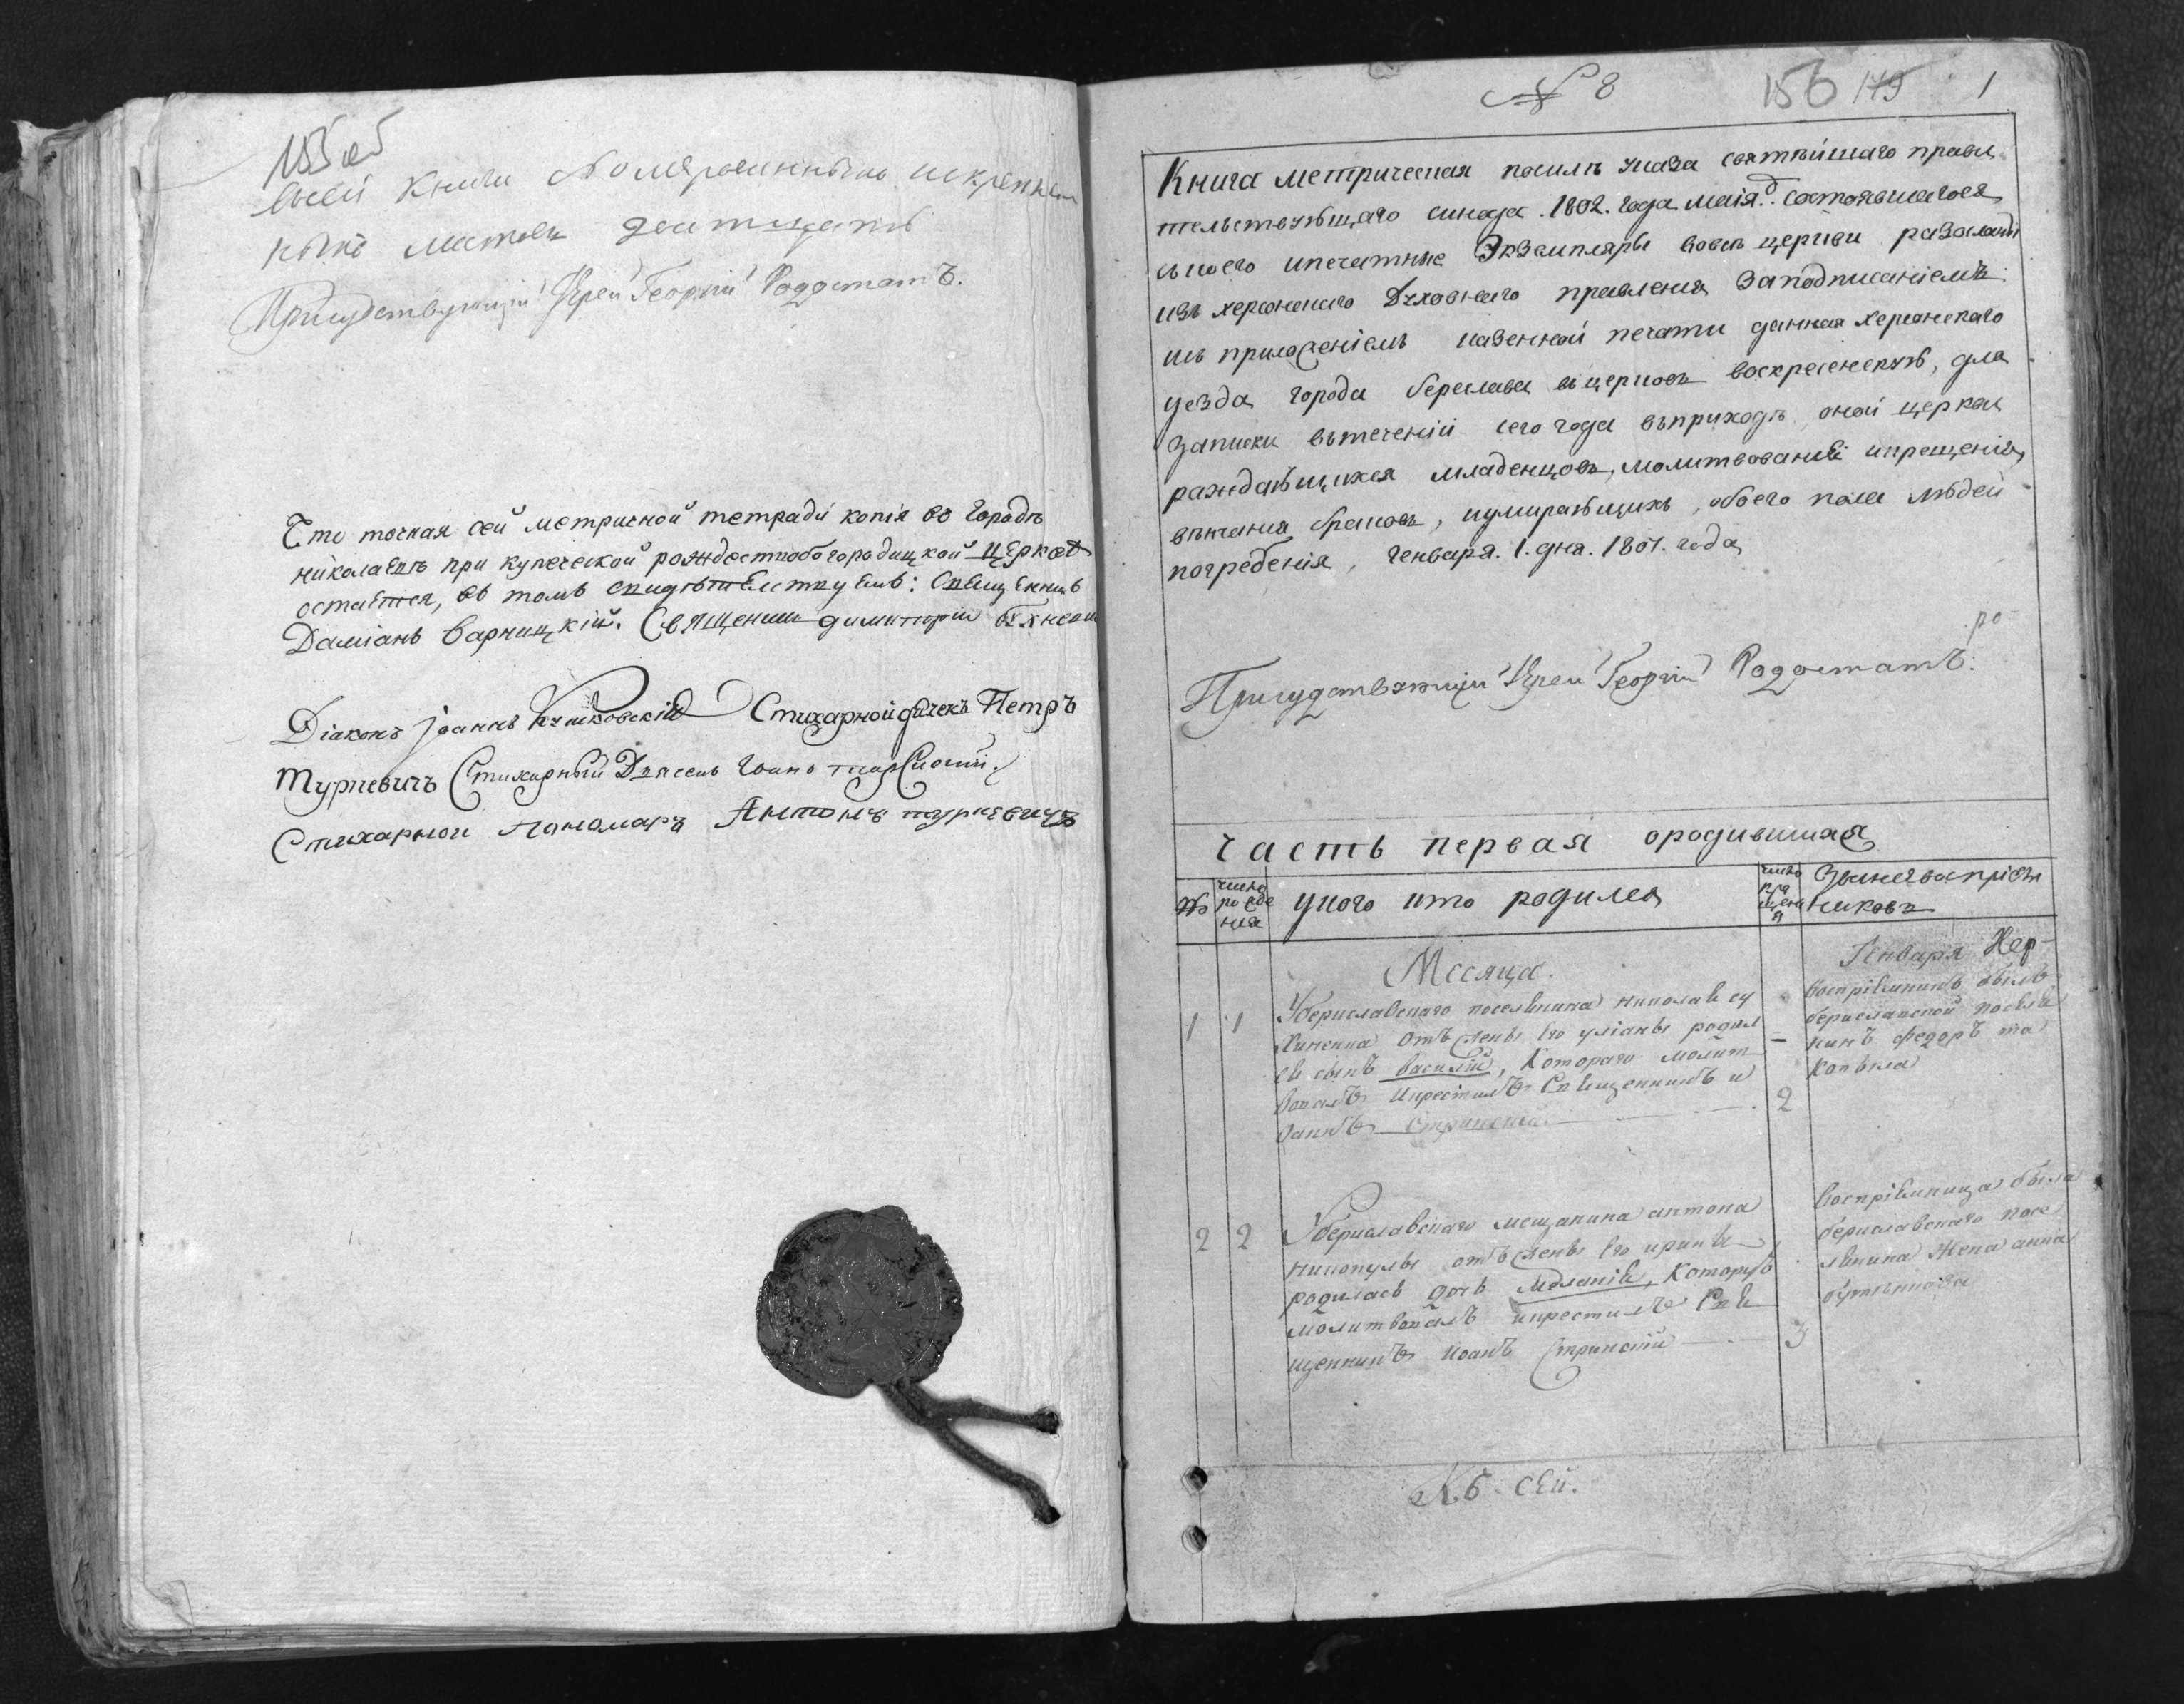 155 об
всей книги номерованныхъ и скрепле
ныхъ листовъ десять
Присудствующій Іерей Георгій Родостатъ.
Что точная сей метричной тетради копія во городѣ
николаевѣ при купеческой рождествобогородицкой церкве
остается, въ томъ свидѣтелствуемъ: Священникъ
Даміанъ Варницкій. Священникъ димитрій
Діаконъ Іоаннъ Стихарной дячекъ Петръ
Туркевичъ Стихарный Дячекъ
Стихарной пономаръ Антонъ туркевичъ
№ 8 156 179 1
Книга метрическая посилѣ указа святѣйшаго прави
тельствующаго синода. 1802. года маія. состоявшагося
съ коего и печатные Экземпляры вовсѣ церкви разосланы
изъ херсонскаго духовнаго правленія за подписаніемъ
и съ приложеніемъ казенной печати данная херсонскаго
уезда города берислава въ церковь воскресенскую, для
записки въ теченіи сего года въ приходѣ оной церкви
раждающихся младенцовъ, молитвованіи и крещенія,
вѣнчания браковъ, и умирающихъ, обоего пола людей
погребенія, Генваря. 1. дня. 1807. года
ро
Присудствующій Іерей Георгій Родостатъ.
Часть первая о родившихся
№ число рожде ния У кого кто родился число кре щени я Звание воспріем никовъ
Месяца Генваря
1 1 У бериславскаго поселянина николая су
отъ жены его уліаны родил
ся сынъ василій, котораго молит
вовалъ и крестилъ Священникъ и
оаннъ 2
воспріемникъ былъ
бериславской поселя
нинъ федоръ
2 2 У бериславскаго мещанина антона
отъ жены его ирины
родилась дочь меланія, которую
молитвовалъ и крестилъ Свя
щенникъ Иоанъ 3
воспріемница была
бериславскаго посе
лянина жена анна
Къ сей.